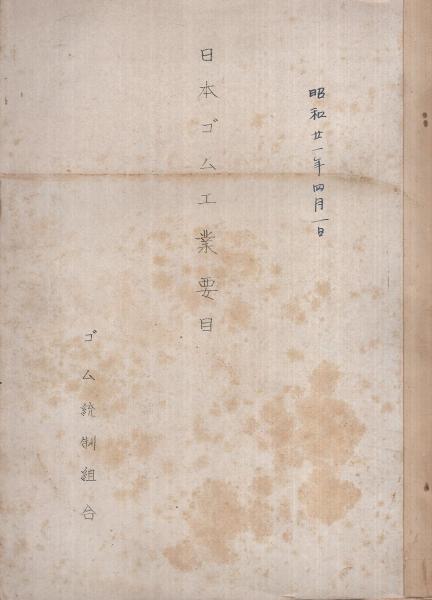 昭和廿一年四月一日
日本ゴム工業要目
ゴム統制組合